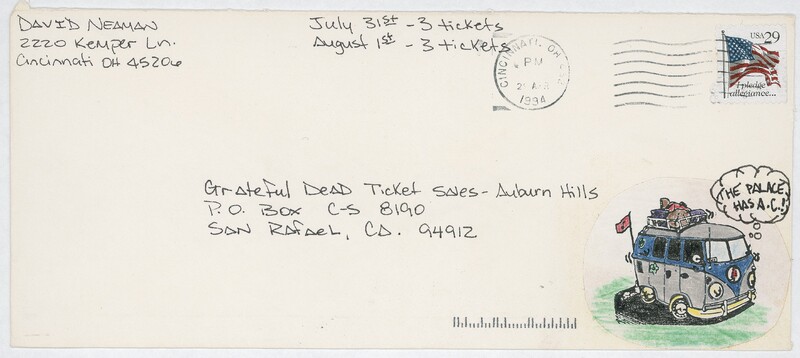 DAVID NEAMAN
2220 Kemper Ln.
Cincinnati OH 45206
July 31st - 3 tickets
August 1st - 3 tickets
CINCINNATI, OH
PM
1994
USA 29
I pledge
allegiance...
Grateful Dead Ticket Sales - Auburn Hills
P.O. Box C-S 8190
San Rafael, CA. 94912
THE PALACE
HAS A.C.!